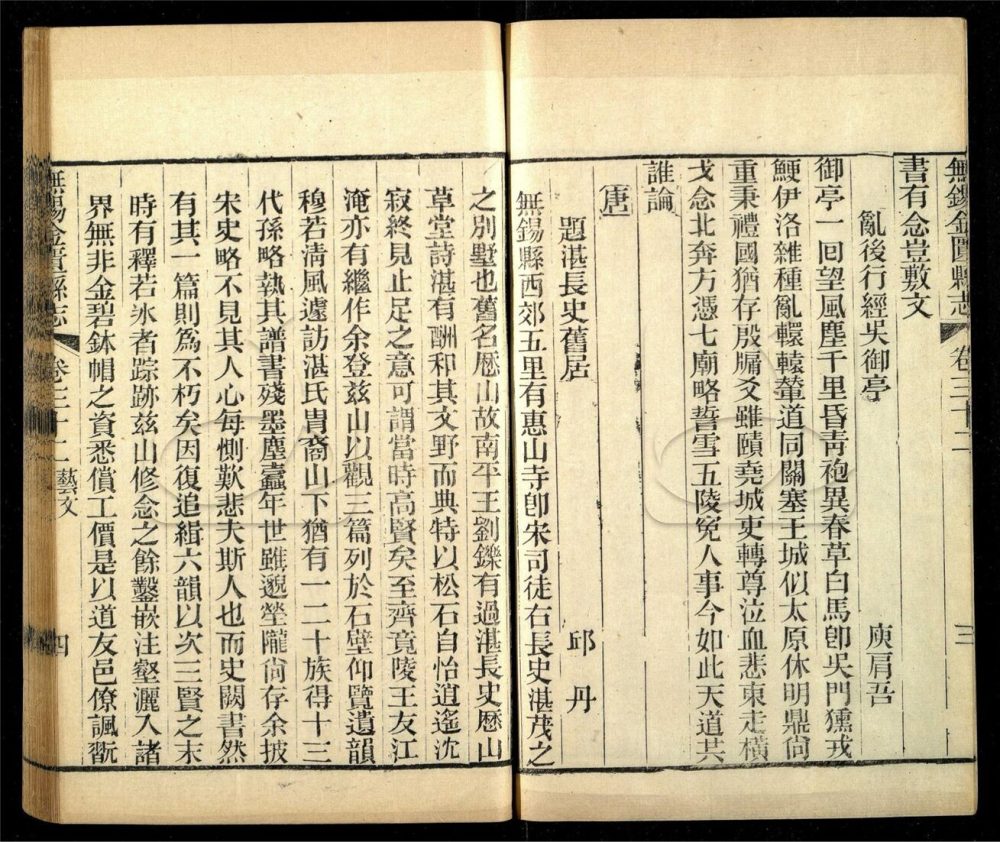 無錫金匱縣志 卷三十二 三
書有念豈敷文
亂後行經吳御亭 庾肩吾
御亭一回望風塵千里昏靑袍異春草白馬卽吳門獯戎
鯁伊洛雜種亂轘轅輦道同關塞王城似太原休明鼎尙
重秉禮國猶存殷牖爻雖賾堯城吏轉尊泣血悲東走橫
戈念北奔方憑七廟略誓雪五陵寃人事今如此天道共
誰論
唐
題湛長史舊居
邱丹
無錫縣西郊五里有惠山寺卽宋司徒右長史湛茂之
之別墅也舊名歷山故南平王劉鑠有過湛長史歷山
草堂詩湛有酬和其文野而典特以松石自怡逍遙沈
寂終見止足之意可謂當時高賢矣至齊竟陵王友江
淹亦有繼作余登兹山以觀三篇列於石壁仰覽遺韻
穆若淸風遽訪湛氏胄裔山下猶有一二十族得十三
代孫略執其譜書殘墨塵蠹年世雖邈塋隴尙存余披
宋史略不見其人心每惻歎悲夫斯人也而史闕書然
有其一篇則爲不朽矣因復追緝六韻以次三賢之末
時有釋若氷者踪跡兹山修念之餘鑿嵌注壑灑入諸
界無非金碧鉢帽之資悉償工價是以道友邑僚諷翫
無錫金匱縣志 卷三十二 藝文 四